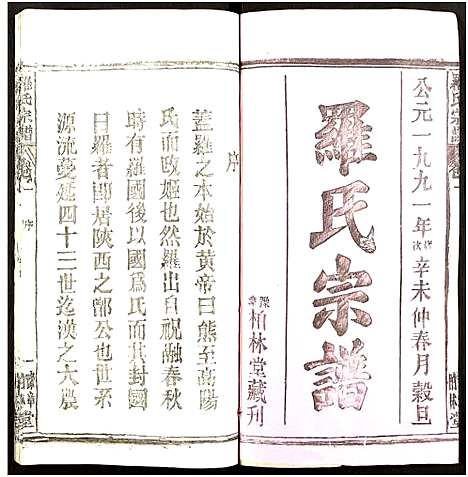 公元一九九一年歲次辛未仲春月穀旦
羅氏宗譜
豫章柏林堂藏刊
序
蓋羅之本始於黃帝曰熊至高陽
氏而改姬也然羅出自祝融春秋
時有羅國後以國為氏而其封國
曰羅者即居陝西之鄜公也世系
源流蔓延四十三世迄漢之大農
羅氏宗譜
序